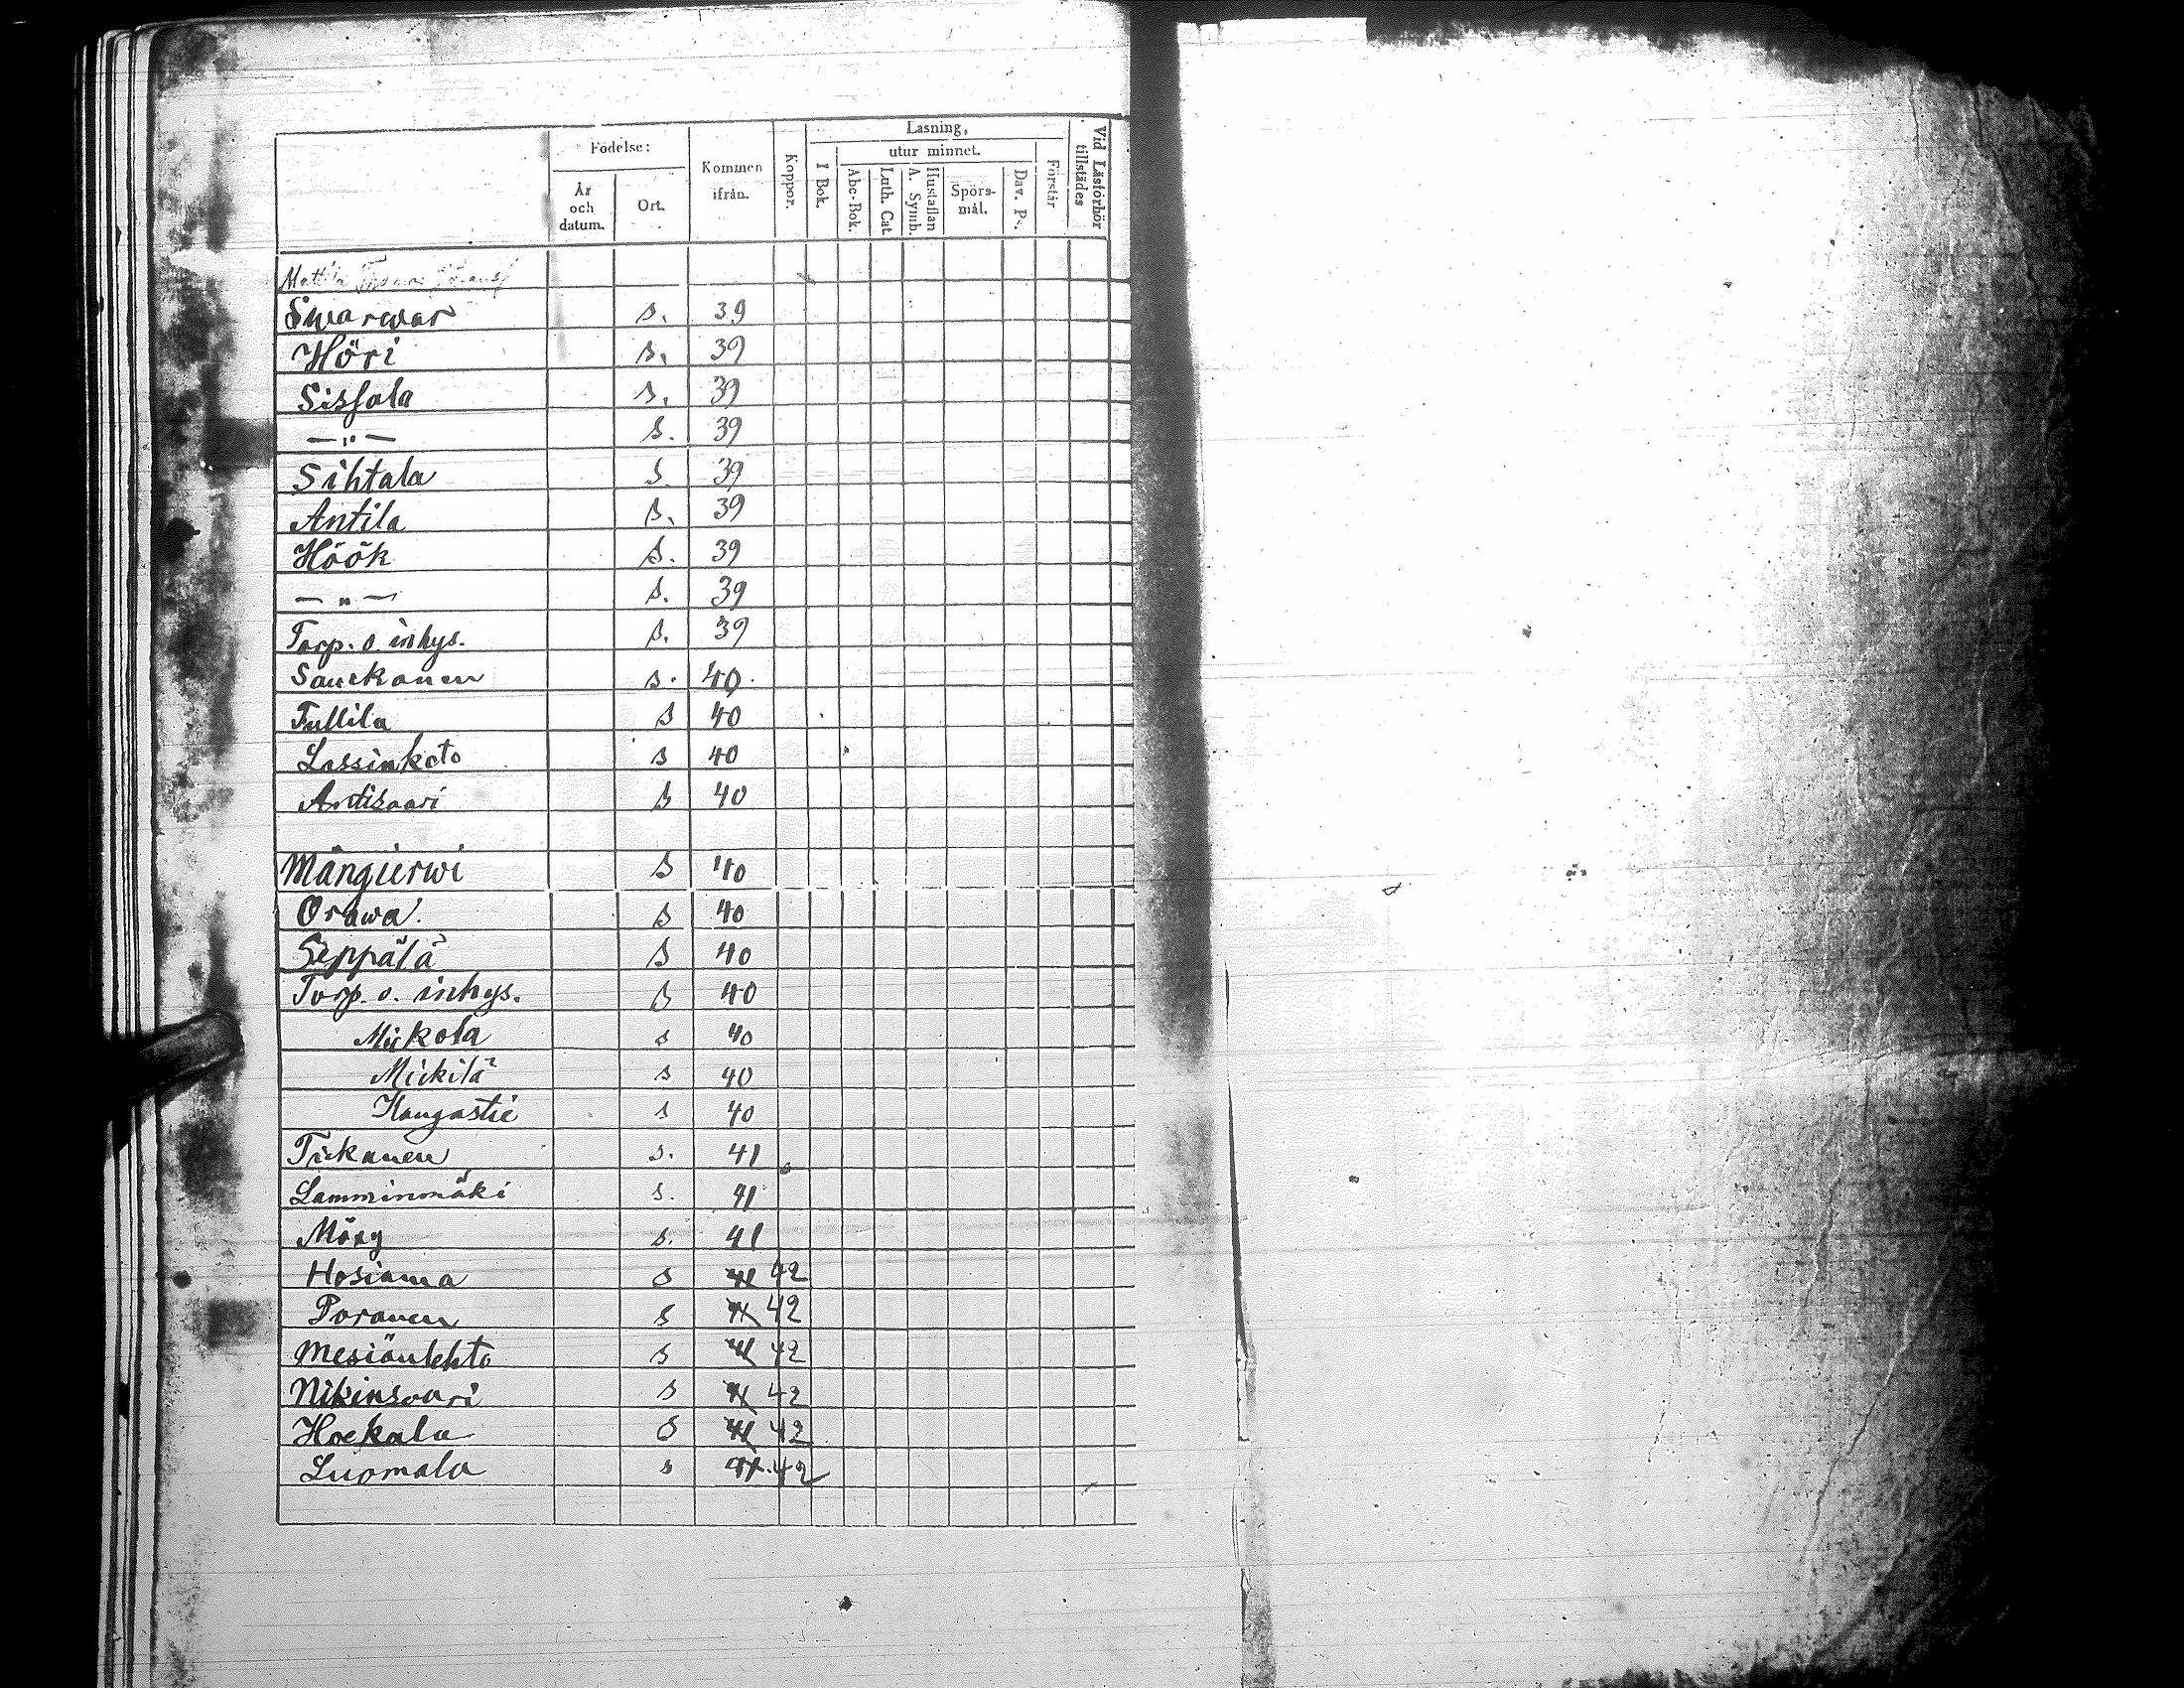 Läsning,
Födelse:
utur minnet.
År och datum.
Ort.
Kommen ifrån.
Koppor.
I Bok.
Abc-Bok.
Luth. Cat.
Hustaflan A. Symb.
Spörs-mål.
Dav. Ps.
Förstår
Vid Läsförhör tillstädes
Mattila Thomas
Swarwar s. 39
Höri s. 39
Sissala s. 39
— " — s. 39
Sihtala s 39
Antila s. 39
Höök s. 39
— " — s. 39
Torp. o. inhys. s. 39
Sauckonen s. 40
Tullila s 40
Lassinkoto s 40
Antisaari s 40
Mängierwi s 40
Orawa s 40
Seppälä s 40
Torp. o. inhys. s 40
Mickola s 40
Mickilä s 40
Kangastie s 40
Tickanen s. 41
Lamminmäki s. 41
Mörg s. 41
Hosioma s 41 42
Poranen s 41 42
Mesiänlehto s 41 42
Nikinsaari s 41 42
Hockala s 41 42
Luomala s 41 42